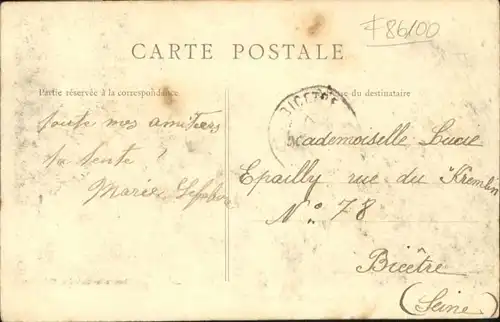 F86100
CARTE POSTALE
Partie réservée à la correspondance
du destinataire
BICETRE
toute mes amitiers
ta tente
Marie Lefebvre
Mademoiselle Lucie
Epailly rue du Kremlin
N° 78
Bicêtre
(Seine)